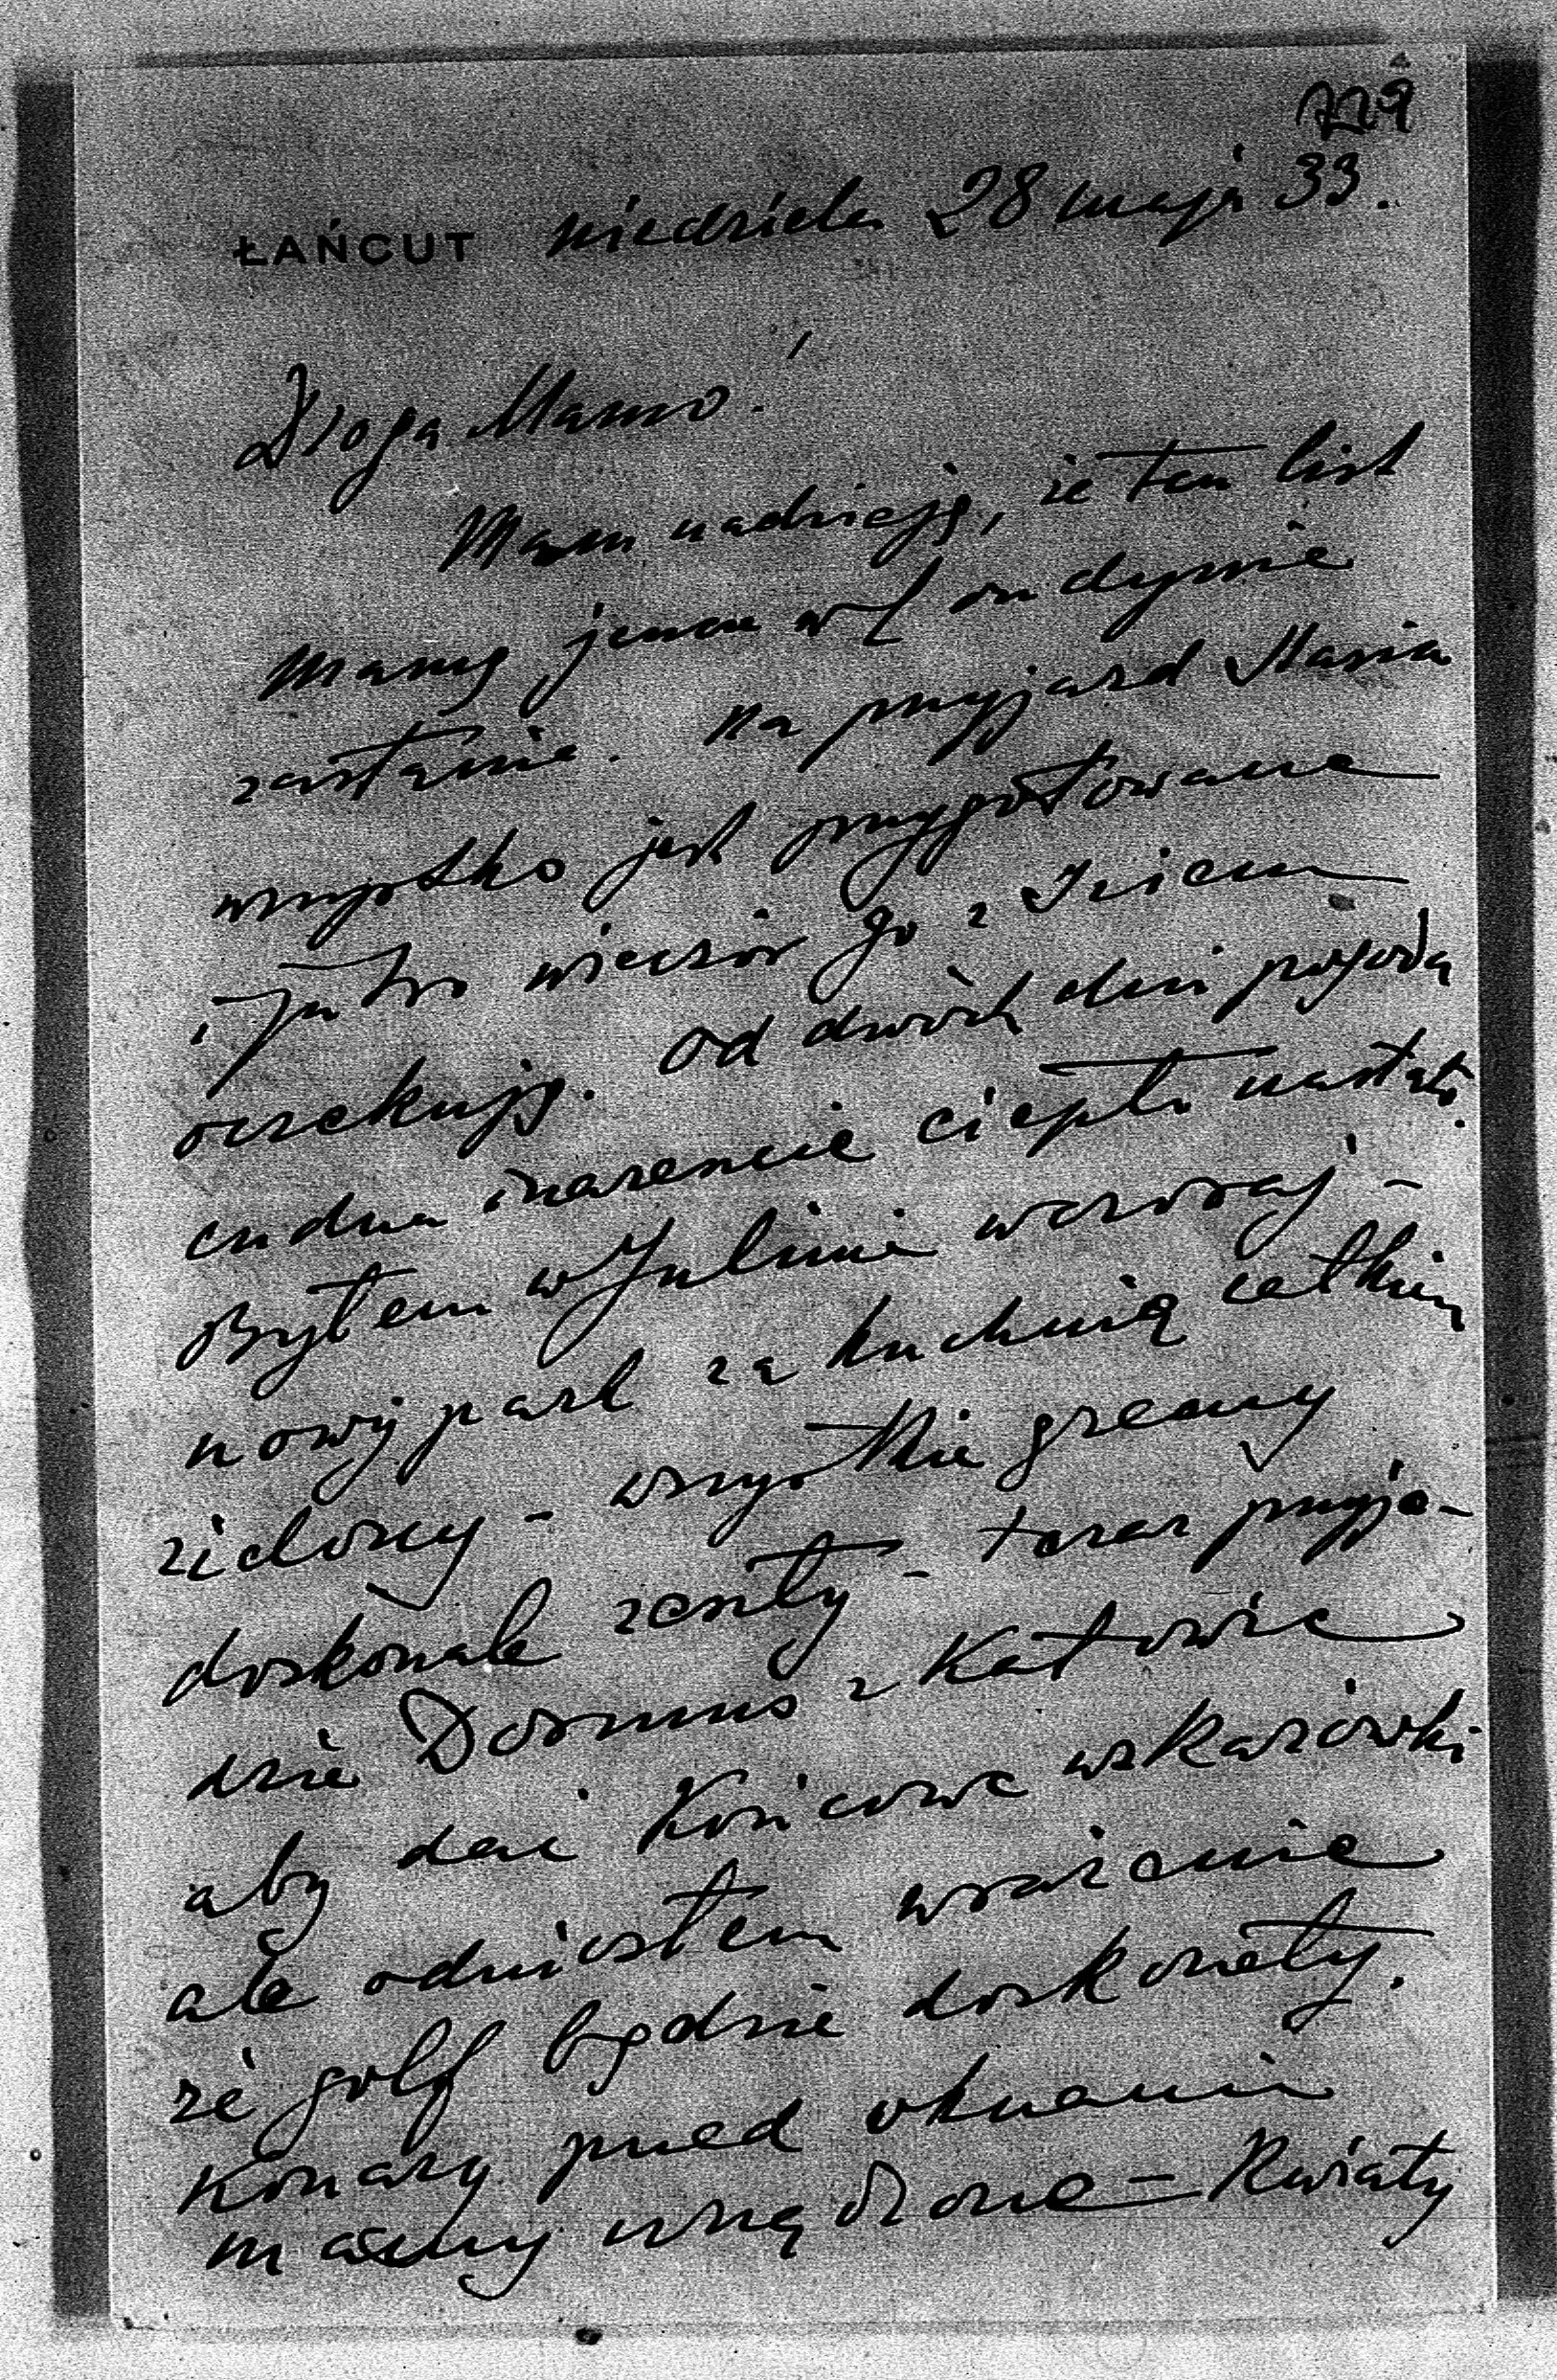 729
ŁAŃCUT niedziela 28 maja 33.
Droga Mamo!
Mam nadzieję, że ten list
Mamę jeszcze w Londynie
zastanie. Na przyjazd Stasia
wszystko jest przygotowane
i jutro wieczór go z Iriem
oczekuję. Od dwóch dni pogoda
cudna i nareszcie ciepło nastało.
Byłem w Julinie wczoraj –
nowy park za kuchnią całkiem
zielony – wszystkie greeny
doskonale zeszły – teraz przyje-
dzie Dormus z Katowic
aby dać końcowe wskazówki
ale odniosłem wrażenie
że golf będzie doskonały.
Konary przed oknami
mamy urządzone – Kwiaty